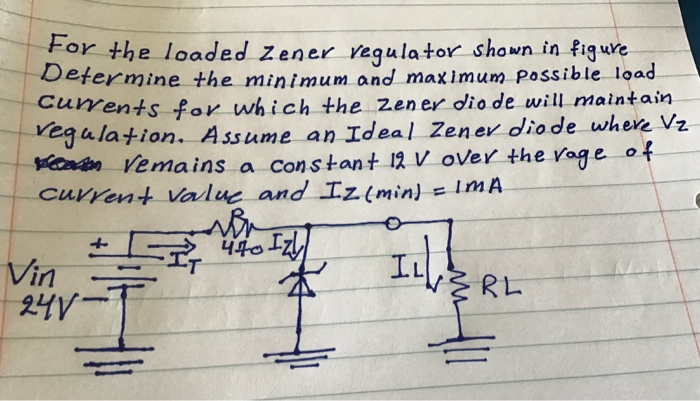 For the loaded Zener regulator shown in figure
Determine the minimum and maximum possible load
currents for which the Zener diode will maintain
regulation. Assume an Ideal Zener diode where Vz
remains a constant 12 V over the rage of
current value and Iz(min) = 1mA
R
470
Iz
+
IT
Vin
24V
IL
RL